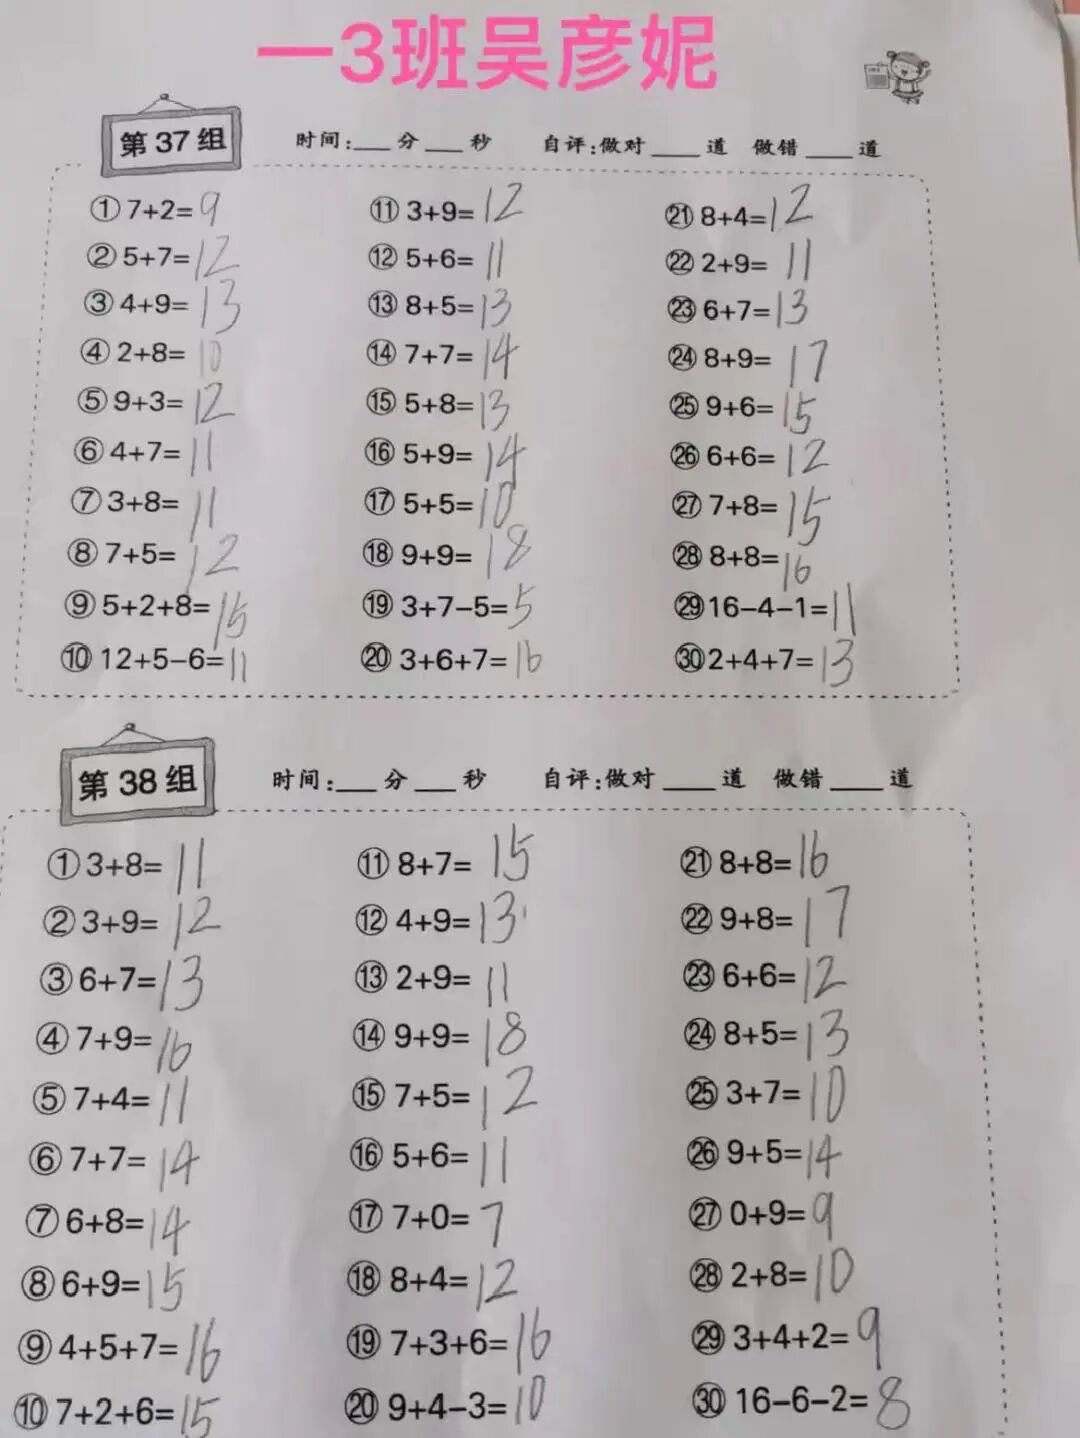 一3班吴彦妮
第 37 组 时间:___分___秒 自评:做对____道 做错____道
①7+2=9 ⑪3+9=12 ㉑8+4=12
②5+7=12 ⑫5+6=11 ㉒2+9=11
③4+9=13 ⑬8+5=13 ㉓6+7=13
④2+8=10 ⑭7+7=14 ㉔8+9=17
⑤9+3=12 ⑮5+8=13 ㉕9+6=15
⑥4+7=11 ⑯5+9=14 ㉖6+6=12
⑦3+8=11 ⑰5+5=10 ㉗7+8=15
⑧7+5=12 ⑱9+9=18 ㉘8+8=16
⑨5+2+8=15 ⑲3+7-5=5 ㉙16-4-1=11
⑩12+5-6=11 ⑳3+6+7=16 ㉚2+4+7=13
第 38 组 时间:___分___秒 自评:做对____道 做错____道
①3+8=11 ⑪8+7=15 ㉑8+8=16
②3+9=12 ⑫4+9=13 ㉒9+8=17
③6+7=13 ⑬2+9=11 ㉓6+6=12
④7+9=16 ⑭9+9=18 ㉔8+5=13
⑤7+4=11 ⑮7+5=12 ㉕3+7=10
⑥7+7=14 ⑯5+6=11 ㉖9+5=14
⑦6+8=14 ⑰7+0=7 ㉗0+9=9
⑧6+9=15 ⑱8+4=12 ㉘2+8=10
⑨4+5+7=16 ⑲7+3+6=16 ㉙3+4+2=9
⑩7+2+6=15 ⑳9+4-3=10 ㉚16-6-2=8